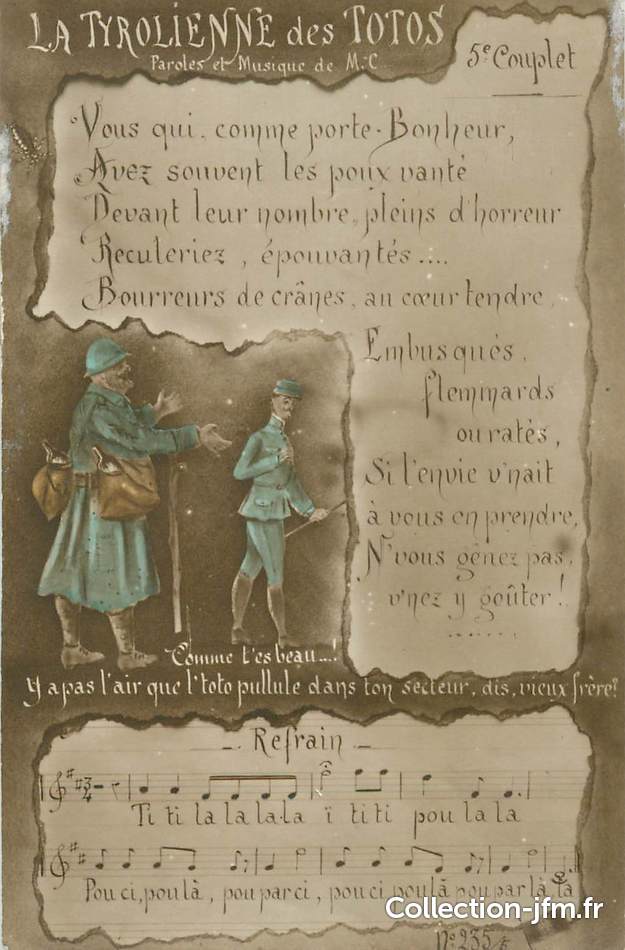 LA TYROLIENNE des TOTOS
Paroles et Musique de M.C.
5e Couplet
Vous qui, comme porte-Bonheur,
Avez souvent les poux vanté
Devant leur nombre, pleins d'horreur
Reculeriez, épouvantés....
Bourreurs de crânes, au cœur tendre,
Embusqués,
flemmards
ou ratés,
Si l'envie v'nait
à vous en prendre,
N'vous gênez pas,
v'nez y goûter !
.......
Comme t'es beau...!
Y a pas l'air que l'toto pullule dans ton secteur, dis, vieux frère?
-. Refrain .-
3/4
Ti ti la la la la ï ti ti pou la la
Pou ci, pou là, pou par ci, pou ci pou là pou par là, la
Collection-jfm.fr
No 235